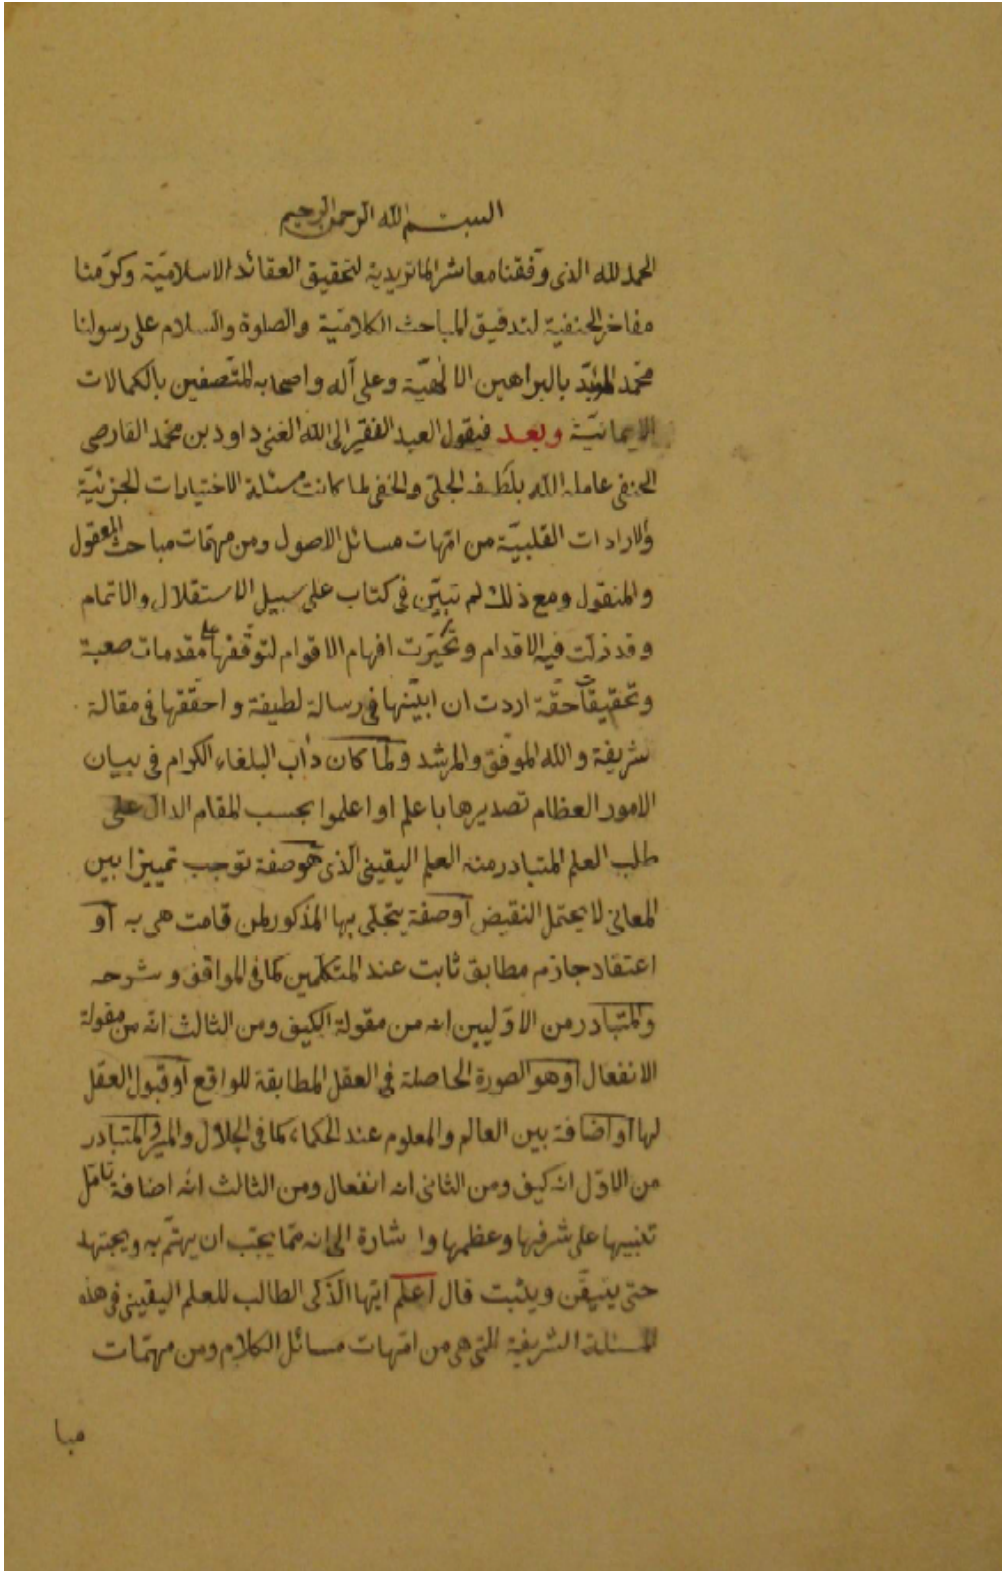 البسم الله الرحمن الرحيم
الحمد لله الذى وفّقنا معاشر الماتريدية لتحقيق العقائد الاسلاميّة وكرّمنا
مفاخر الحنفية لتدقيق المباحث الكلاميّة والصلوة والسلام على رسولنا
محمّد المؤيّد بالبراهين الالهيّة وعلى آله واصحابه المتّصفين بالكمالات
الايمانيّة وبعد فيقول العبد الفقير الى الله الغنى داود بن محمّد القارصى
الحنفى عامله الله بلطفه الجلى والخفى لما كانت مسئلة الاختيارات الجزئيّة
والارادات القلبيّة من امّهات مسائل الاصول ومن مهمّات مباحث المعقول
والمنقول ومع ذلك لم تبيّن فى كتاب على سبيل الاستقلال والاتمام
وقد زلت فيه الاقدام وتحيّرت افهام الاقوام لتوقّفها على مقدمات صعبة
وتحقيقات حقّة اردت ان ابيّنها فى رسالة لطيفة واحقّقها فى مقالة
شريفة والله الموفّق والمرشد ولمّا كان دأب البلغاء الكرام فى بيان
الامور العظام تصديرها باعلم او اعلموا بحسب المقام الدال على
طلب العلم المتبادر منه العلم اليقينى الّذى هو صفة توجب تمييزا بين
المعانى لا يحتمل النقيض أو صفة يتجلّى بها المذكور لمن قامت هى به أو
اعتقاد جازم مطابق ثابت عند المتكلّمين كما فى المواقف وشرحه
والمتبادر من الاوّليين انه من مقولة الكيف ومن الثالث انّه من مقولة
الانفعال أو هو الصورة الحاصلة فى العقل المطابقة للواقع أو قبول العقل
لها أو اضافة بين العالم والمعلوم عند الحكماء كما فى الجلال والمير والمتبادر
من الاوّل انه كيف ومن الثانى انه انفعال ومن الثالث انّه اضافة تأمّل
تنبيها على شرفها وعظمها واشارة الى انه ممّا يجب ان يهتمّ به ويجتهد
حتى يتيقّن ويثبت قال اعلم ايّها الذكى الطالب للعلم اليقينى فى هذه
المسئلة الشريفة التى هى من امّهات مسائل الكلام ومن مهمّات
مبا